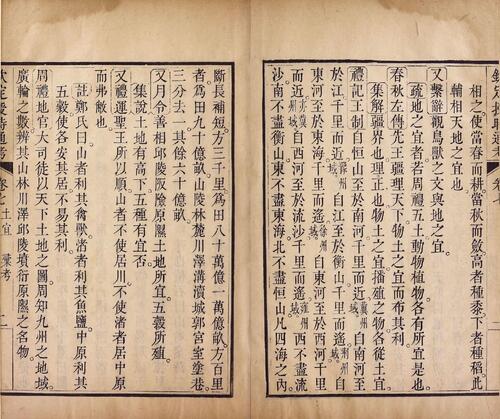 欽定授時通考
相之使當春而耕當秋而斂高者種黍下者種稻此
輔相天地之宜也
又繫辭觀鳥獸之文與地之宜
疏地之宜者若周禮五土動物植物各有所宜是也
春秋左傳先王疆理天下物土之宜而布其利
集解疆界也理正也物土之宜播殖之物各從土宜
禮記王制自恒山至於南河千里而近冀州域自南河至
於江千里而近豫州域自江至於衡山千里而遙荊州域自
東河至於東海千里而遙徐州域自東河至於西河千里
而近亦冀州域自西河至於流沙千里而遙雍州域西不盡流
沙南不盡衡山東不盡東海北不盡恒山凡四海之內
斷長補短方三千里爲田八十萬億一萬億畝方百里
者爲田九十億畝山陵林麓川澤溝瀆城郭宮室塗巷
三分去一其餘六十億畝
又月令善相邱陵阪險原隰土地所宜五穀所殖
集說土地有高下五種有宜否
又禮運聖王所以順山者不使居川不使渚者居中原
而弗敝也
註鄭氏曰山者利其禽獸渚者利其魚鹽中原利其
五穀使各安其居不易其利
周禮地官大司徒以天下土地之圖周知九州之地域
廣輪之數辨其山林川澤邱陵墳衍原隰之名物
欽定授時通考 卷七 土宜 彙考 二